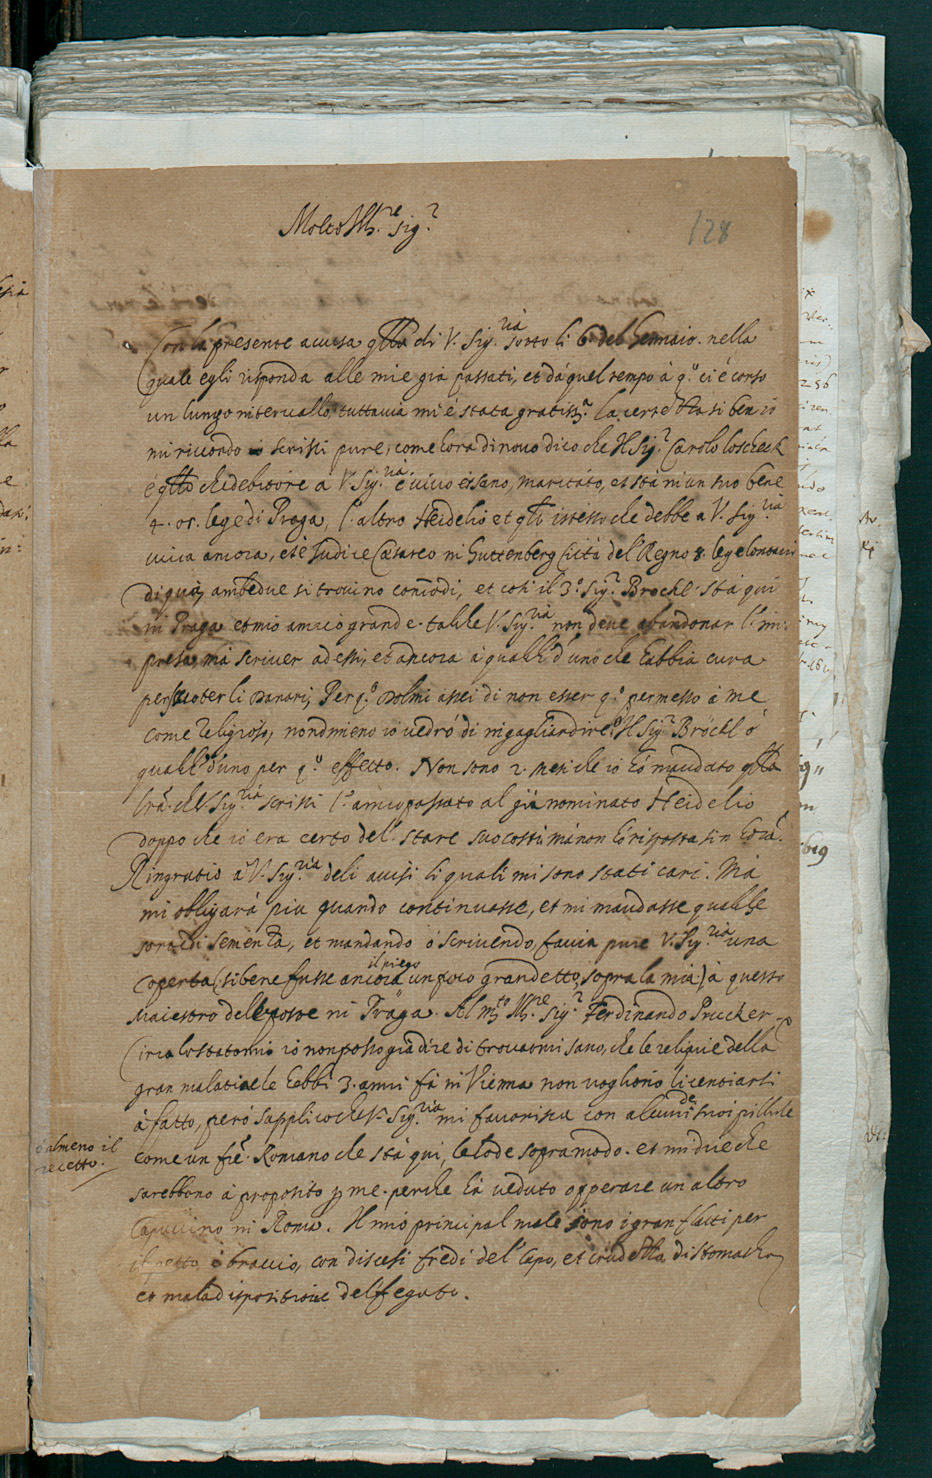 Molto Ill.re Sig.r
128
Con la presente accusa q̃lla di V. Sig.ria sotto li 6 del Gennaio. nella
quale egli risponda alle mie già passati, et dà quel tempo à q.o ci é corso
un lungo intervallo, tuttavia mi é stata gratiss.a La certezza si ben io
mi ricordo io scrissi pure, come hora di novo dico che Il Sig.r Carolo Loscheck
é q̃llo che debitore à V. Sig.ria é vivo et sano, maritato, et stà in un suo bene
4. or. lege di Praga, l'altro Heidelio et q̃lli istesso che debbe a V. Sig.ria
vivia ancora, et é Iudice Cesareo in Guttenberg Città del Regno 8. lege lontani
di quà, ambedue si trovino comõdi, et cosi il 3.o Sig.r Brockl stà quì
in Praga et mio amico grande. talche V. Sig.ria non deve abandonar l'im:
presa, mà scriver ad essi, et ancora à qualch'd'uno che habbia cura
per scuoter li Danari, Per q.o Dolmi assei di non esser q.o permesso à me
come religioso, nondimeno io vedrò di rigagliardire Il Sig.r Bröckl ò
qualch'd'uno per q.o effetto. Non sono 2. mesi che io hò mandato q̃lla
lrã. che V. Sig.ria scrissi l'anno passato al già nominato Heidelio
doppo che io era certo del stare suo costì mà non hò risposta sin hora.
Ringratio à V. Sig.ria deli avisi li quali mi sono stati cari. Mà
mi obligarà più quando continuasse, et mi mandasse qualche
sorte di sementa, et mandando ò scrivendo, faccia pure V. Sig.ria una
coperta (: sibene fusse ancora il piego un poco grandetto, sopra la mia) à questo
Maiestro delle poste in Praga. Al m.to Ill.re Sig.r Ferdinando Prucker.
Circa lo stato mio io non posso già dire di trovarmi sano, che le reliquie della
gran malatia che hebbi 3. anni fà in Vienna non vogliono licentiarsi
à fatto, però supplico che V. Sig.ria mi favorisca con alcuni de suoi pillule
ò almeno il
recetto.
come un frẽ. Romano che stà qui, le lode sopra modo. et mi dice che
sarebbono à proposito p me. perche hà veduto opperare un altro
Capuccino in Roma. Il mio principal male sono i gran flatti per
il petto, è braccio, con discesi fredi del Capo, et crudezza di stomacho,
et mala dispositione del fegato.